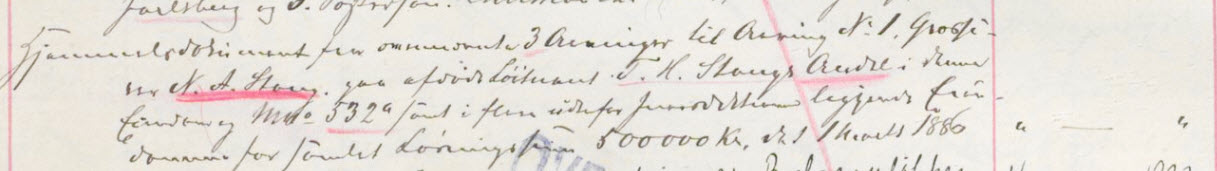 Jarlsberg og
Hjemmelsdokument fra ommeldte 3 Arvinger til Arving No 1, Grosse-
rer N. A. Stang. paa afdøde Løitnant T. H. Stangs Andel i denne
Eiendom og Mno 532a samt i flere udenfor Jurisdiktionen liggende Eien-
domme for samlet Løsningssum 500000 Kr, dat 1 Marts 1886 " — "